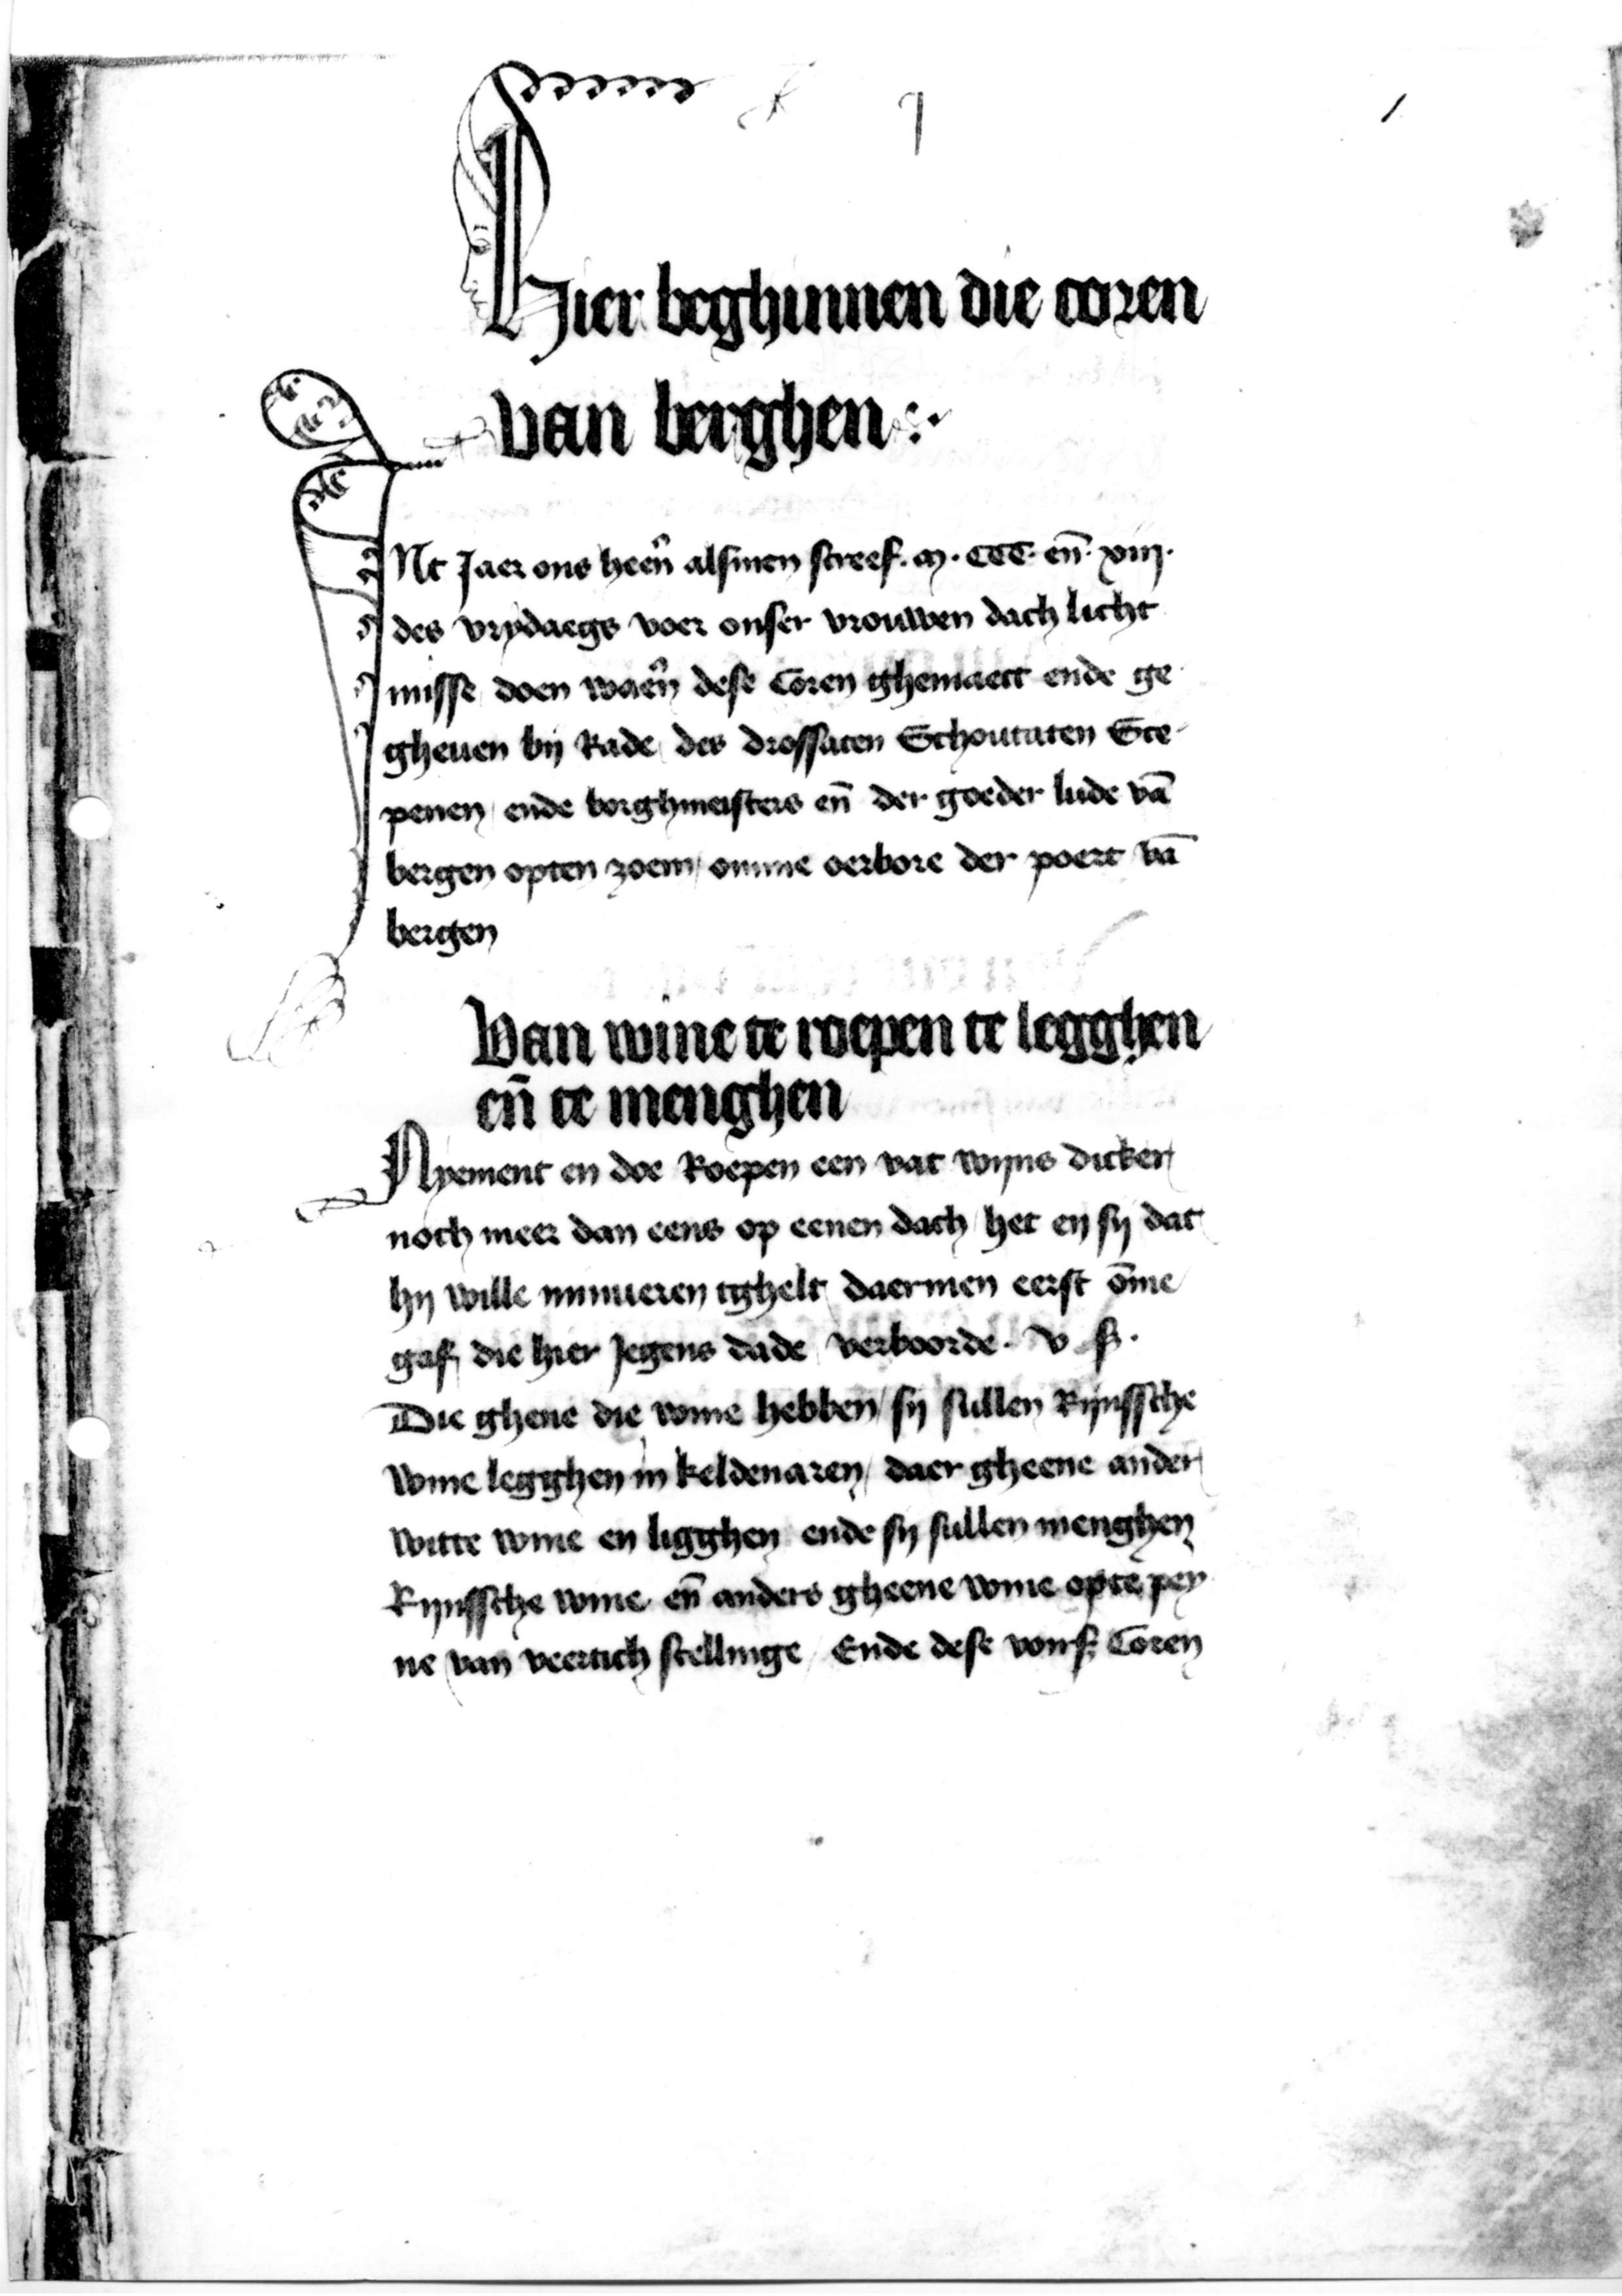 Hier beghinnen die coren
van berghen :·
INt Jaer ons heeñ alsmen screef. m. CCC. eñ. xiij.
des vrydaegs voer onser vrouwen dach licht
misse doen waeñ dese Coren ghemaect ende ge
gheuen bij Rade des drossaten Schoutaten Sce
penen ende borghmeisters eñ der goeder lude vā
bergen opten zoem omme oerbore der poert vā
bergen
Van wine te roepen te legghen
eñ te menghen
Nyement en doe Roepen een vat wijns dicker
noch meer dan eens op eenen dach het en sij dat
hij wille minueren tghelt daermen eerst ōme
gaf die hier Jegens dade verboorde. v ß.
Die ghene die wine hebben sij sullen Rijnssche
wine legghen in keldenaren daer gheene ander
witte wine en ligghen ende sij sullen menghen
Rijnssche wine eñ anders gheene wine opte pey
ne van veertich scellinge Ende dese Coren